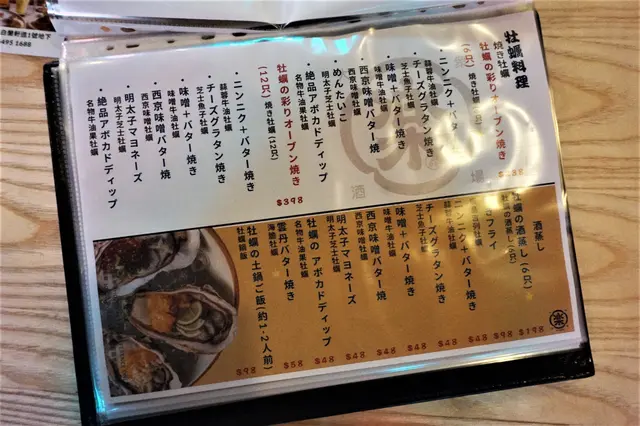 自樂軒進1號地下
495 1688
牡蠣料理
焼き牡蠣
牡蠣の彩りオーブン焼き
(6只)
・ニンニク+バター
蒜蓉牛油牡蠣
・チーズグラタン焼き
芝士魚子牡蠣
・味噌+バター焼き
味噌牛油牡蠣
・西京味噌バター焼
西京味噌牡蠣
・めんたいこ
明太子芝士牡蠣
・絶品アボカドディップ
名物牛油果牡蠣
牡蠣の彩りオーブン焼き
(12只) 焼き牡蠣 (12只)
$398
・ニンニク+バター焼き
蒜蓉牛油牡蠣
・チーズグラタン焼き
芝士魚子牡蠣
・味噌+バター焼き
味噌牛油牡蠣
・西京味噌バター焼
西京味噌牡蠣
・明太子マヨネーズ
明太子芝士牡蠣
・絶品アボカドディップ
名物牛油果牡蠣
酒場
酒蒸し
牡蠣の酒蒸し (6只)
牡蠣の酒蒸し (6只)
$198
フライ
$98
ニンニク+バター焼き
蒜蓉牛油牡蠣
$48
チーズグラタン焼き
芝士魚子牡蠣
$48
味噌+バター焼き
味噌牛油牡蠣
$48
西京味噌バター焼
西京味噌牡蠣
$48
明太子マヨネーズ
明太子芝士牡蠣
$48
牡蠣のアボカドディップ
名物牛油果牡蠣
$48
雲丹バター焼き
海膽牡蠣
$58
牡蠣の土鍋ご飯(約1-2人前)
牡蠣鍋飯
$98